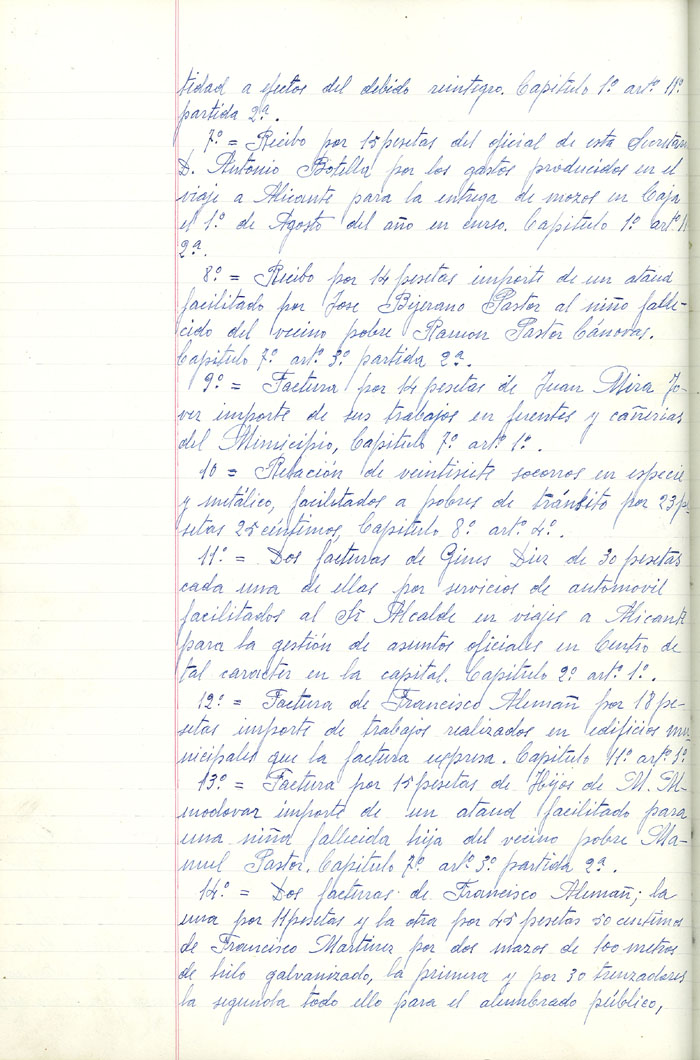 tidad a efectos del debido reintegro. Capitulo 1º artº 11º
partida 2ª.
7º = Recibo por 15 pesetas del oficial de esta Secretar
D. Antonio Botella por los gastos producidos en el
viaje a Alicante para la entrega de mozos en Caja
el 1º de Agosto del año en curso. Capitulo 1º artº
2ª.
8º = Recibo por 14 pesetas importe de un ataud
facilitado por Jose Bijerano Pastor al niño falle-
cido del vecino pobre Ramon Pastor Cánovas.
Capitulo 7º artº 3º partida 2ª.
9º = Factura por 14 pesetas de Juan Mira Jo-
ver importe de sus trabajos en fuentes y cañerias
del Municipio, Capitulo 7º artº 1º.
10 = Relación de veintisiete socorros en especie
y metálico, facilitados a pobres de tránsito por 23 p
setas 25 céntimos, Capitulo 8º artº 4º.
11º = Dos facturas de Gines Diez de 30 pesetas
cada una de ellas por servicios de automovil
facilitados al Sr Alcalde en viajes a Alicante
para la gestión de asuntos oficiales en Centro de
tal caracter en la capital. Capitulo 2º artº 1º.
12º = Factura de Francisco Alemañ por 18 pe-
setas importe de trabajos realizados en edificios mu
nicipales que la factura expresa. Capitulo 11º artº
13º = Factura por 15 pesetas de Hijos de M.
modovar importe de un ataud facilitado para
una niña fallecida hija del vecino pobre Ma-
nuel Pastor. Capitulo 7º artº 3º partida 2ª.
14º = Dos facturas de Francisco Alemañ; la
una por 11 pesetas y la otra por 45 pesetas 50 centimos
de Francisco Martinez por dos mazos de 100 metros
de hilo galvanizado, la primera y por 30 trenzadores
la segunda todo ello para el alumbrado público,